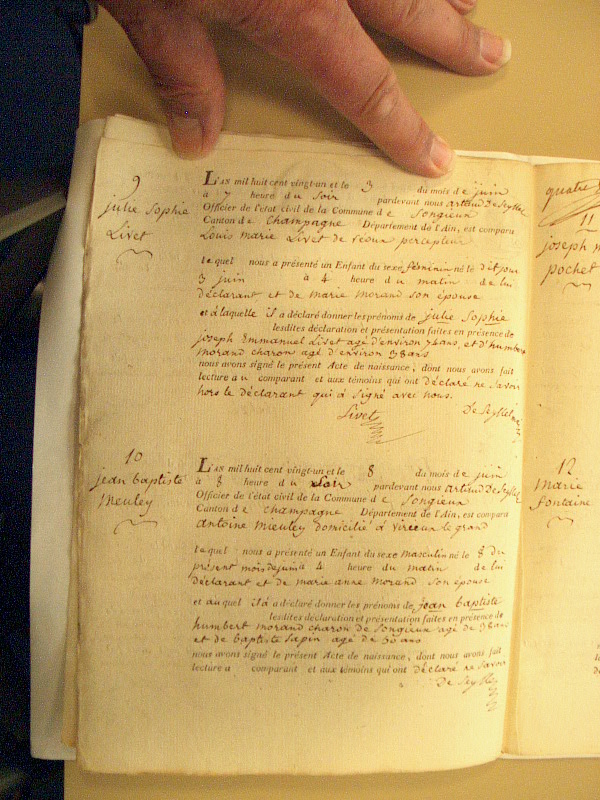 9
julie Sophie
Livet
L'AN mil huit cent vingt-un et le 3 du mois de juin
à 7 heure du Soir pardevant nous artaud DeSeyssel
Officier de l'état civil de la Commune de Songieux
Canton de Champagne Département de l'Ain, est comparu
Louis marie Livet de percepteur
lequel nous a présenté un Enfant du sexe féminin né le dit jour
3 juin à 4 heure du matin de lui
déclarant et de marie morand son épouse
et à laquelle il a déclaré donner les prénoms de julie Sophie
lesdites déclaration et présentation faites en présence de
joseph Emmanuel Livet agé d'environ 74 ans, et d'humbert
morand charons agé d'environ 38 ans
nous avons signé le présent Acte de naissance, dont nous avons fait
lecture au comparant et aux témoins qui ont déclaré ne savoir
hors le déclarant qui à signé avec nous.
Livet
10
jean baptiste
mieuley
L'AN mil huit cent vingt-un et le 8 du mois de juin
à 8 heure du Soir pardevant nous artaud DeSeyssel
Officier de l'état civil de la Commune de Songieux
Canton de Champagne Département de l'Ain, est comparu
antoine mieuley domicilié à virieux le grand
lequel nous a présenté un Enfant du sexe masculin né le 8 du
présent mois de juin à 4 heure du matin de lui
déclarant et de marie anne morand son épouse
et auquel il à a déclaré donner les prénoms de jean baptiste
lesdites déclaration et présentation faites en présence de
humbert morand charon de Songieux agé de 38 ans
et de baptiste Lapin agé de 30 ans
nous avons signé le présent Acte de naissance, dont nous avons fait
lecture a comparant et aux témoins qui ont déclaré ne savoir
quatre
11
joseph
pochet
12
marie
fontaine